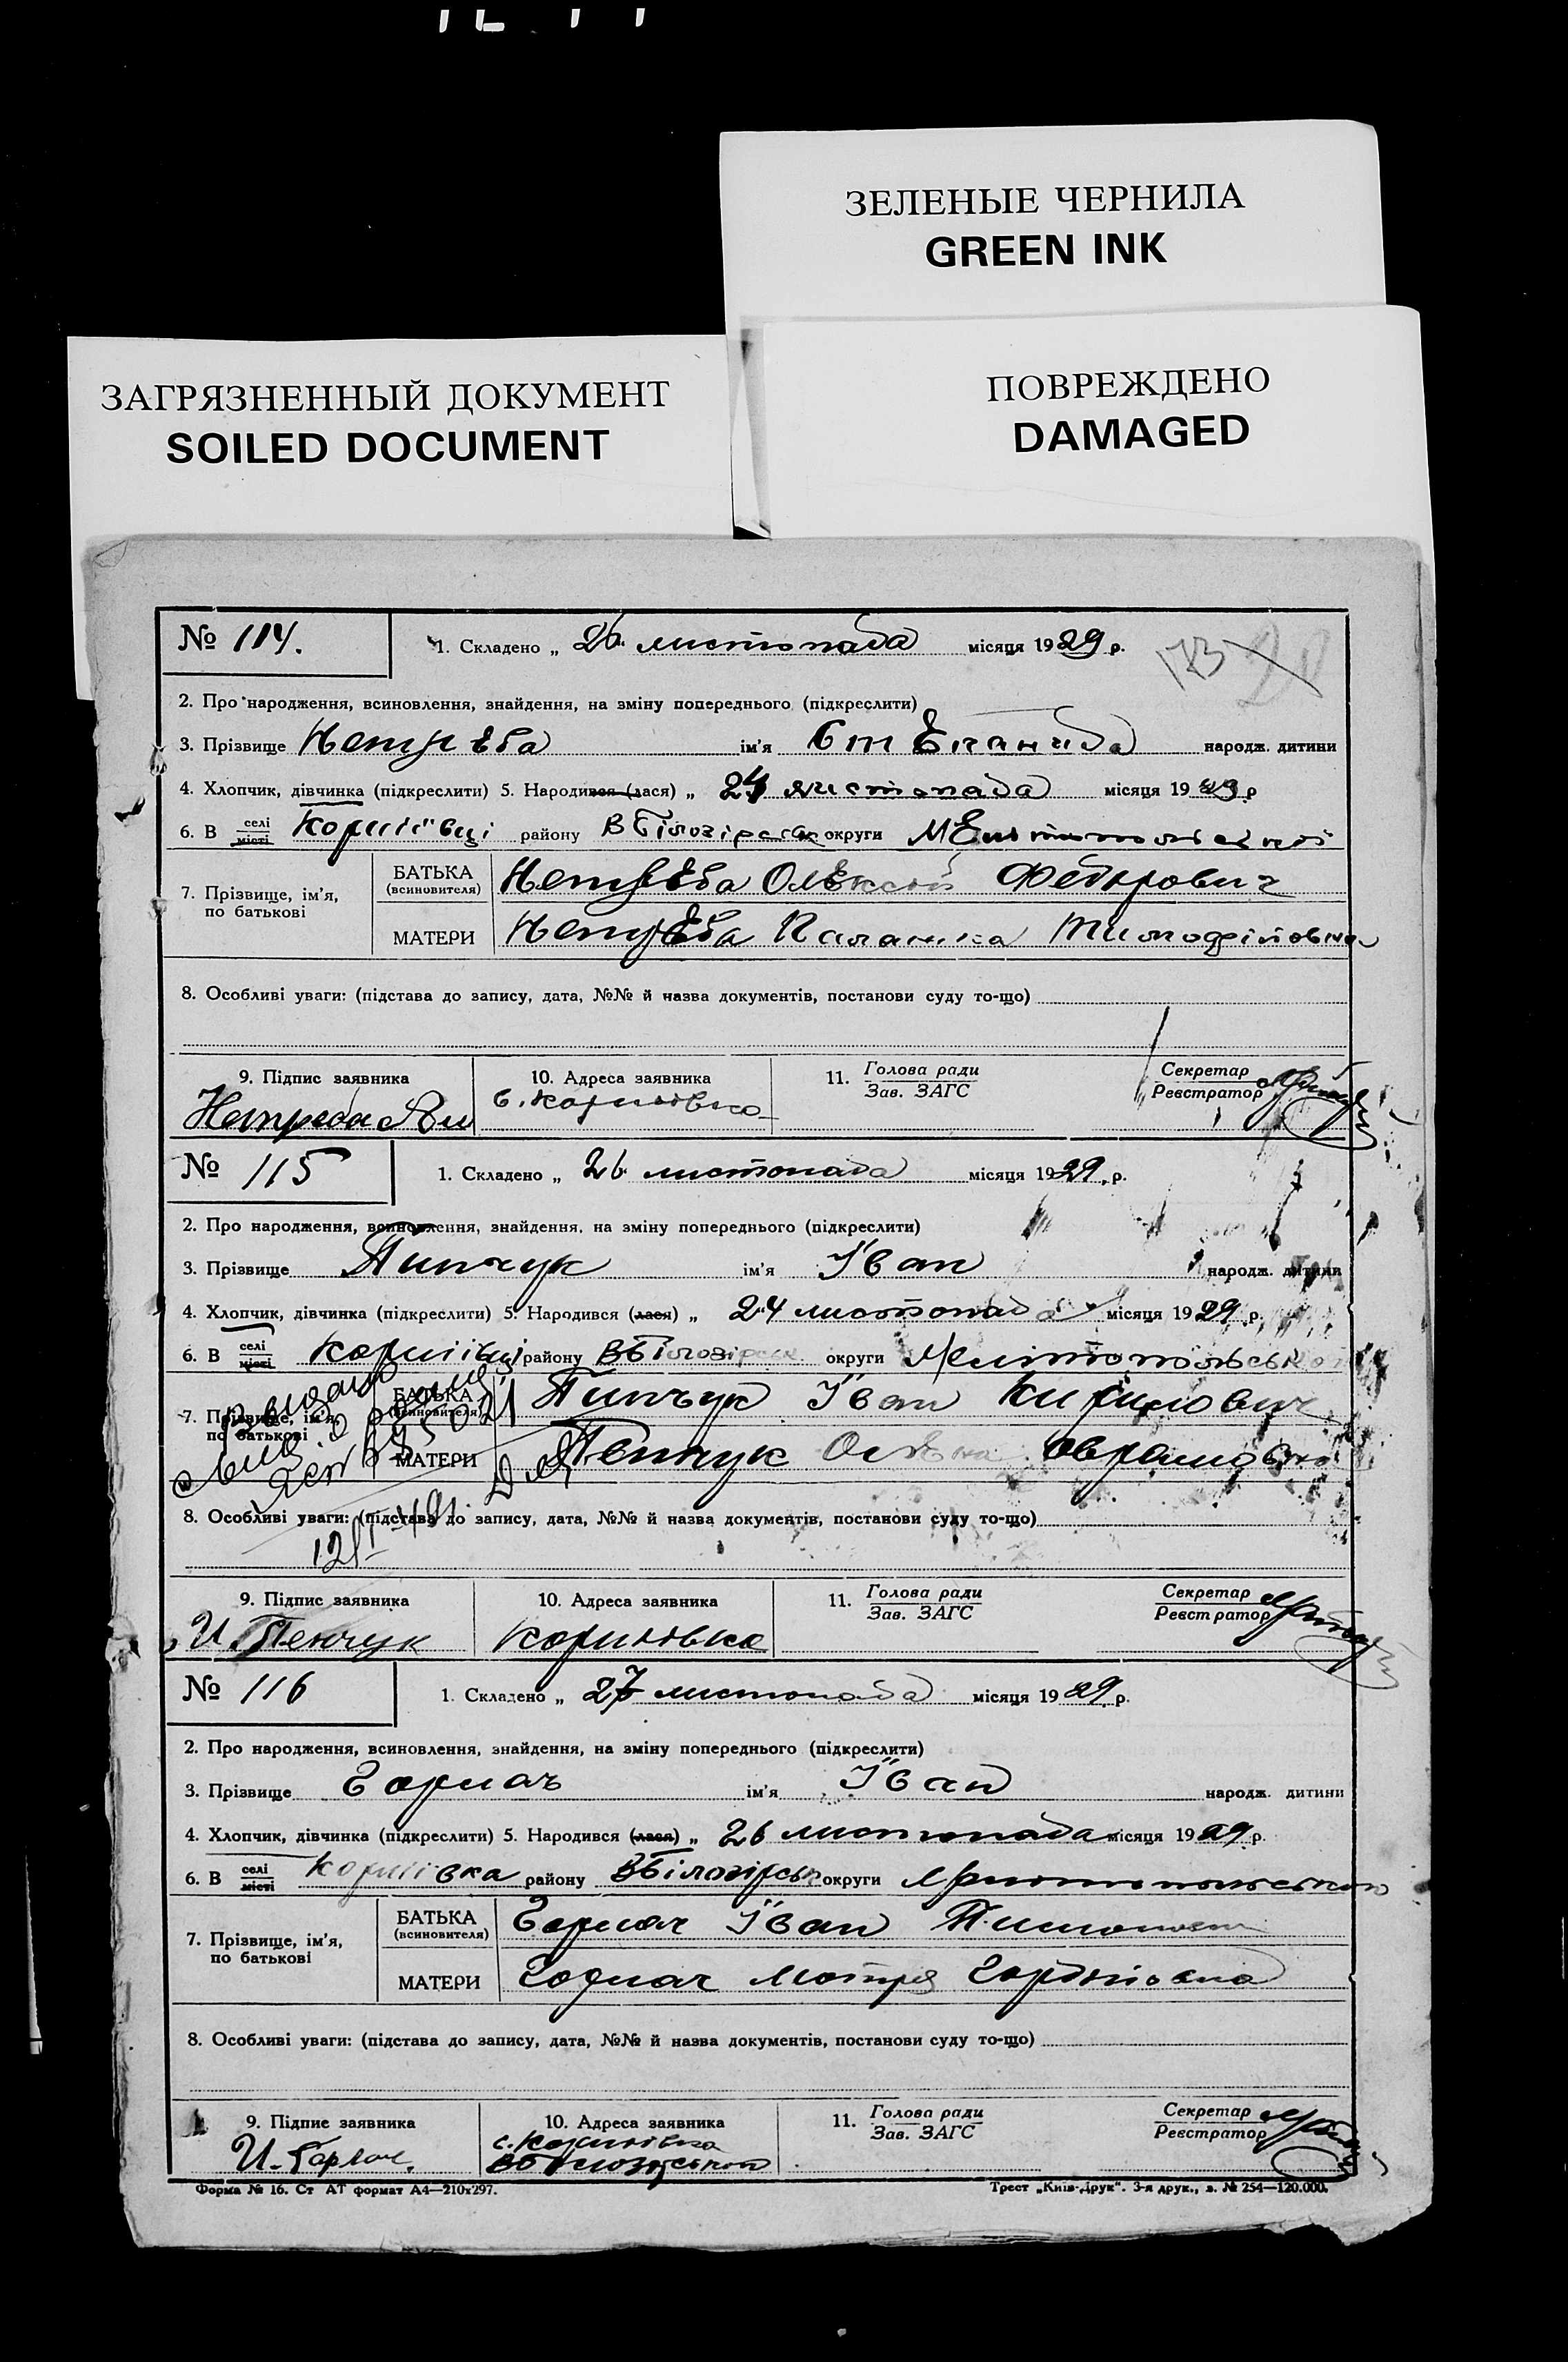 ЗЕЛЕНЫЕ ЧЕРНИЛА
GREEN INK
ЗАГРЯЗНЕННЫЙ ДОКУМЕНТ
SOILED DOCUMENT
ПОВРЕЖДЕНО
DAMAGED
№ 114. 1. Складено „ 26 листопада місяця 1929 р. 173
2. Про народження, всиновлення, знайдення, на зміну попереднього (підкреслити)
3. Прізвище Непреба ім'я Степанида народж. дитини
4. Хлопчик, дівчинка (підкреслити) 5. Народився (лася) „ 24 листопада місяця 1929 р
6. В селі місті Корніївці району ВБілозірськ округи Мелітопольської
7. Прізвище, ім'я, по батькові
БАТЬКА (всиновителя) Непреба Олексій Федорович
МАТЕРИ Непреба Палажка
8. Особливі уваги: (підстава до запису, дата, №№ й назва документів, постанови суду то-що)
9. Підпис заявника 10. Адреса заявника 11. Голова ради Зав. ЗАГС Секретар Реєстратор
Непреба с. Корніівка
№ 115 1. Складено „ 26 листопада місяця 1929 р.
2. Про народження, всиновлення, знайдення, на зміну попереднього (підкреслити)
3. Прізвище Пинчук ім'я Іван народж. дитини
4. Хлопчик, дівчинка (підкреслити) 5. Народився (лася) „ 24 листопада місяця 1929 р.
6. В селі місті Корніівці району ВБілозірськ округи Мелітопольської
7. Прізвище, ім'я, по батькові
БАТЬКА (всиновителя) Пинчук Іван Кирилович
МАТЕРИ Пенчук Оврамовна
8. Особливі уваги: (підстава до запису, дата, №№ й назва документів, постанови суду то-що)
9. Підпис заявника 10. Адреса заявника 11. Голова ради Зав. ЗАГС Секретар Реєстратор
И. Пенчук Корніівка
№ 116 1. Складено „ 27 листопада місяця 1929 р.
2. Про народження, всиновлення, знайдення, на зміну попереднього (підкреслити)
3. Прізвище ім'я Іван народж. дитини
4. Хлопчик, дівчинка (підкреслити) 5. Народився (лася) „ 26 листопада місяця 1929 р.
6. В селі місті Корніівка району ВБілозірськ округи
7. Прізвище, ім'я, по батькові
БАТЬКА (всиновителя) Іван
МАТЕРИ Мотря Гордіівна
8. Особливі уваги: (підстава до запису, дата, №№ й назва документів, постанови суду то-що)
9. Підпис заявника 10. Адреса заявника 11. Голова ради Зав. ЗАГС Секретар Реєстратор
И. с. Корніівка
Форма № 16. Ст АТ формат А4—210х297. Трест „Київ-Друк". 3-я друк., з. № 254—120.000.